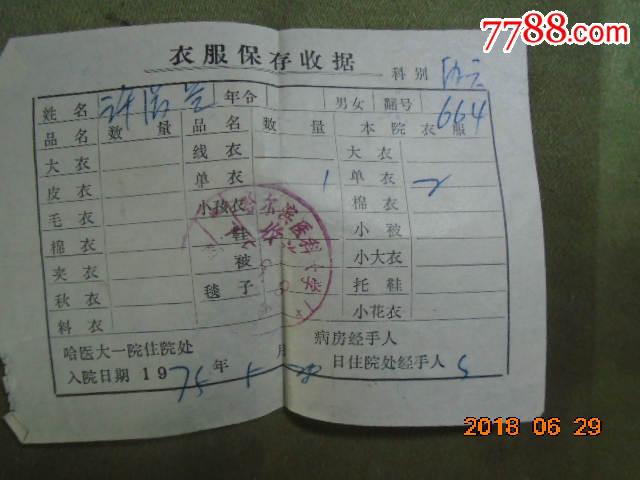 7788.com
衣服保存收据
科别
姓名 许 年令 男女 番号 664
品名 数量 品名 数量 本院衣服
大衣 线衣 大衣
皮衣 单衣 1 单衣 2
毛衣 小孩衣 棉衣
棉衣 鞋 小被
夹衣 被 小大衣
秋衣 毯子 托鞋
料衣 小花衣
哈尔滨医科大学
哈医大一院住院处 病房经手人
入院日期 19 年 月 日 住院处经手人
2018 06 29